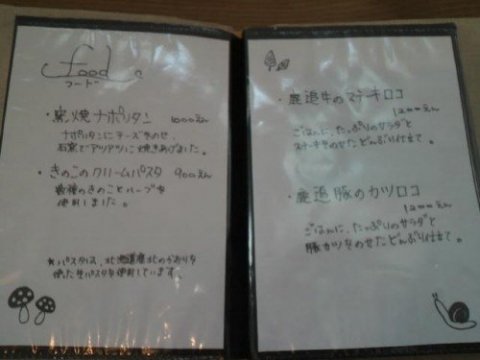 food
フード
・窯焼ナポリタン 1000えん
ナポリタンにチーズをのせ、
石窯でアツアツに焼きあげました。
・きのこのクリームパスタ 900えん
数種のきのことハーブを
使用しました。
*パスタは、北海道産小麦を
使った生パスタを使用しています。
・鹿追牛のステーキロコ
1200えん
ごはんに、たっぷりのサラダと
ステーキをのせたどんぶり仕立て。
・鹿追豚のカツロコ
1200えん
ごはんに、たっぷりのサラダと
豚カツをのせたどんぶり仕立て。